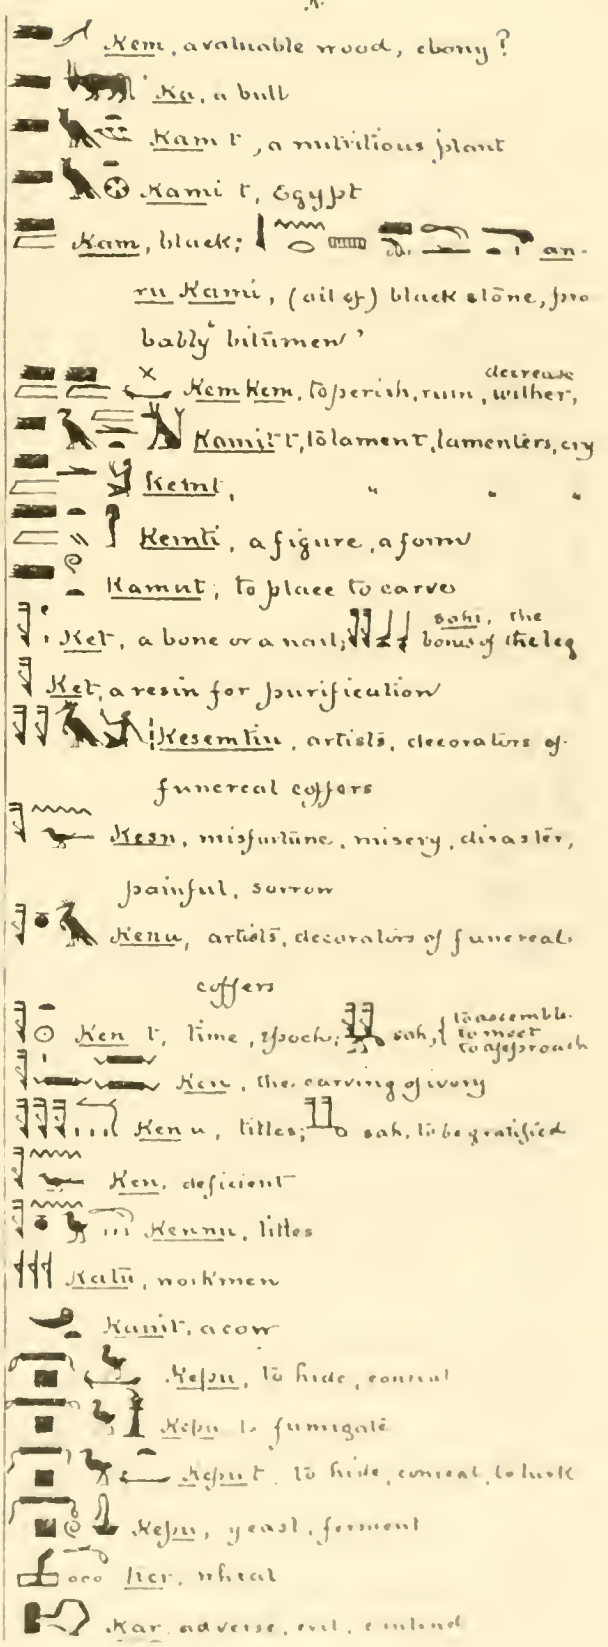 K.
Kem, a valuable wood, ebony?
Ka, a bull
Kam t, a nutritious plant
Kami t, Egypt
Kam, black; an-
ru Kami, (oil of) black stone, pro
bably "bitumen"
Kem Kem, to perish, ruin, wither, decrease
Kamit t, to lament, lamenters, cry
Kemt, " " "
Kemti, a figure, a form
Kamut, to place to carve
Ket, a bone or a nail; sahi, the bones of the leg
Ket, a resin for purification
Kesemtiu, artists, decorators of
funereal coffers
Kesn, misfortune, misery, disaster,
painful, sorrow
Kenu, artists, decorators of funereal
coffers
Ken t, time, epoch; sah, { to assemble to meet to approach
Ken, the carving of ivory
Ken u, titles; sah, to be gratified
Ken, deficient
Kennu, titles
Katu, workmen
Kauit, a cow
Kepu, to hide, conceal
Kepu to fumigate
Keput to hide, conceal, to lurk
Kepu, yeast, ferment
Ker, wheat
Kar adverse, evil,